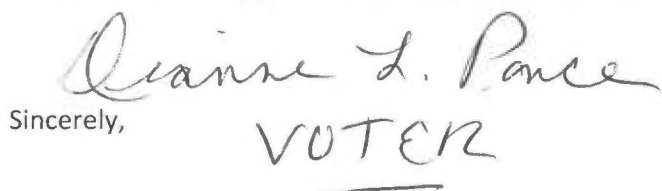 Dianne L. Ponce
Sincerely,
VOTER